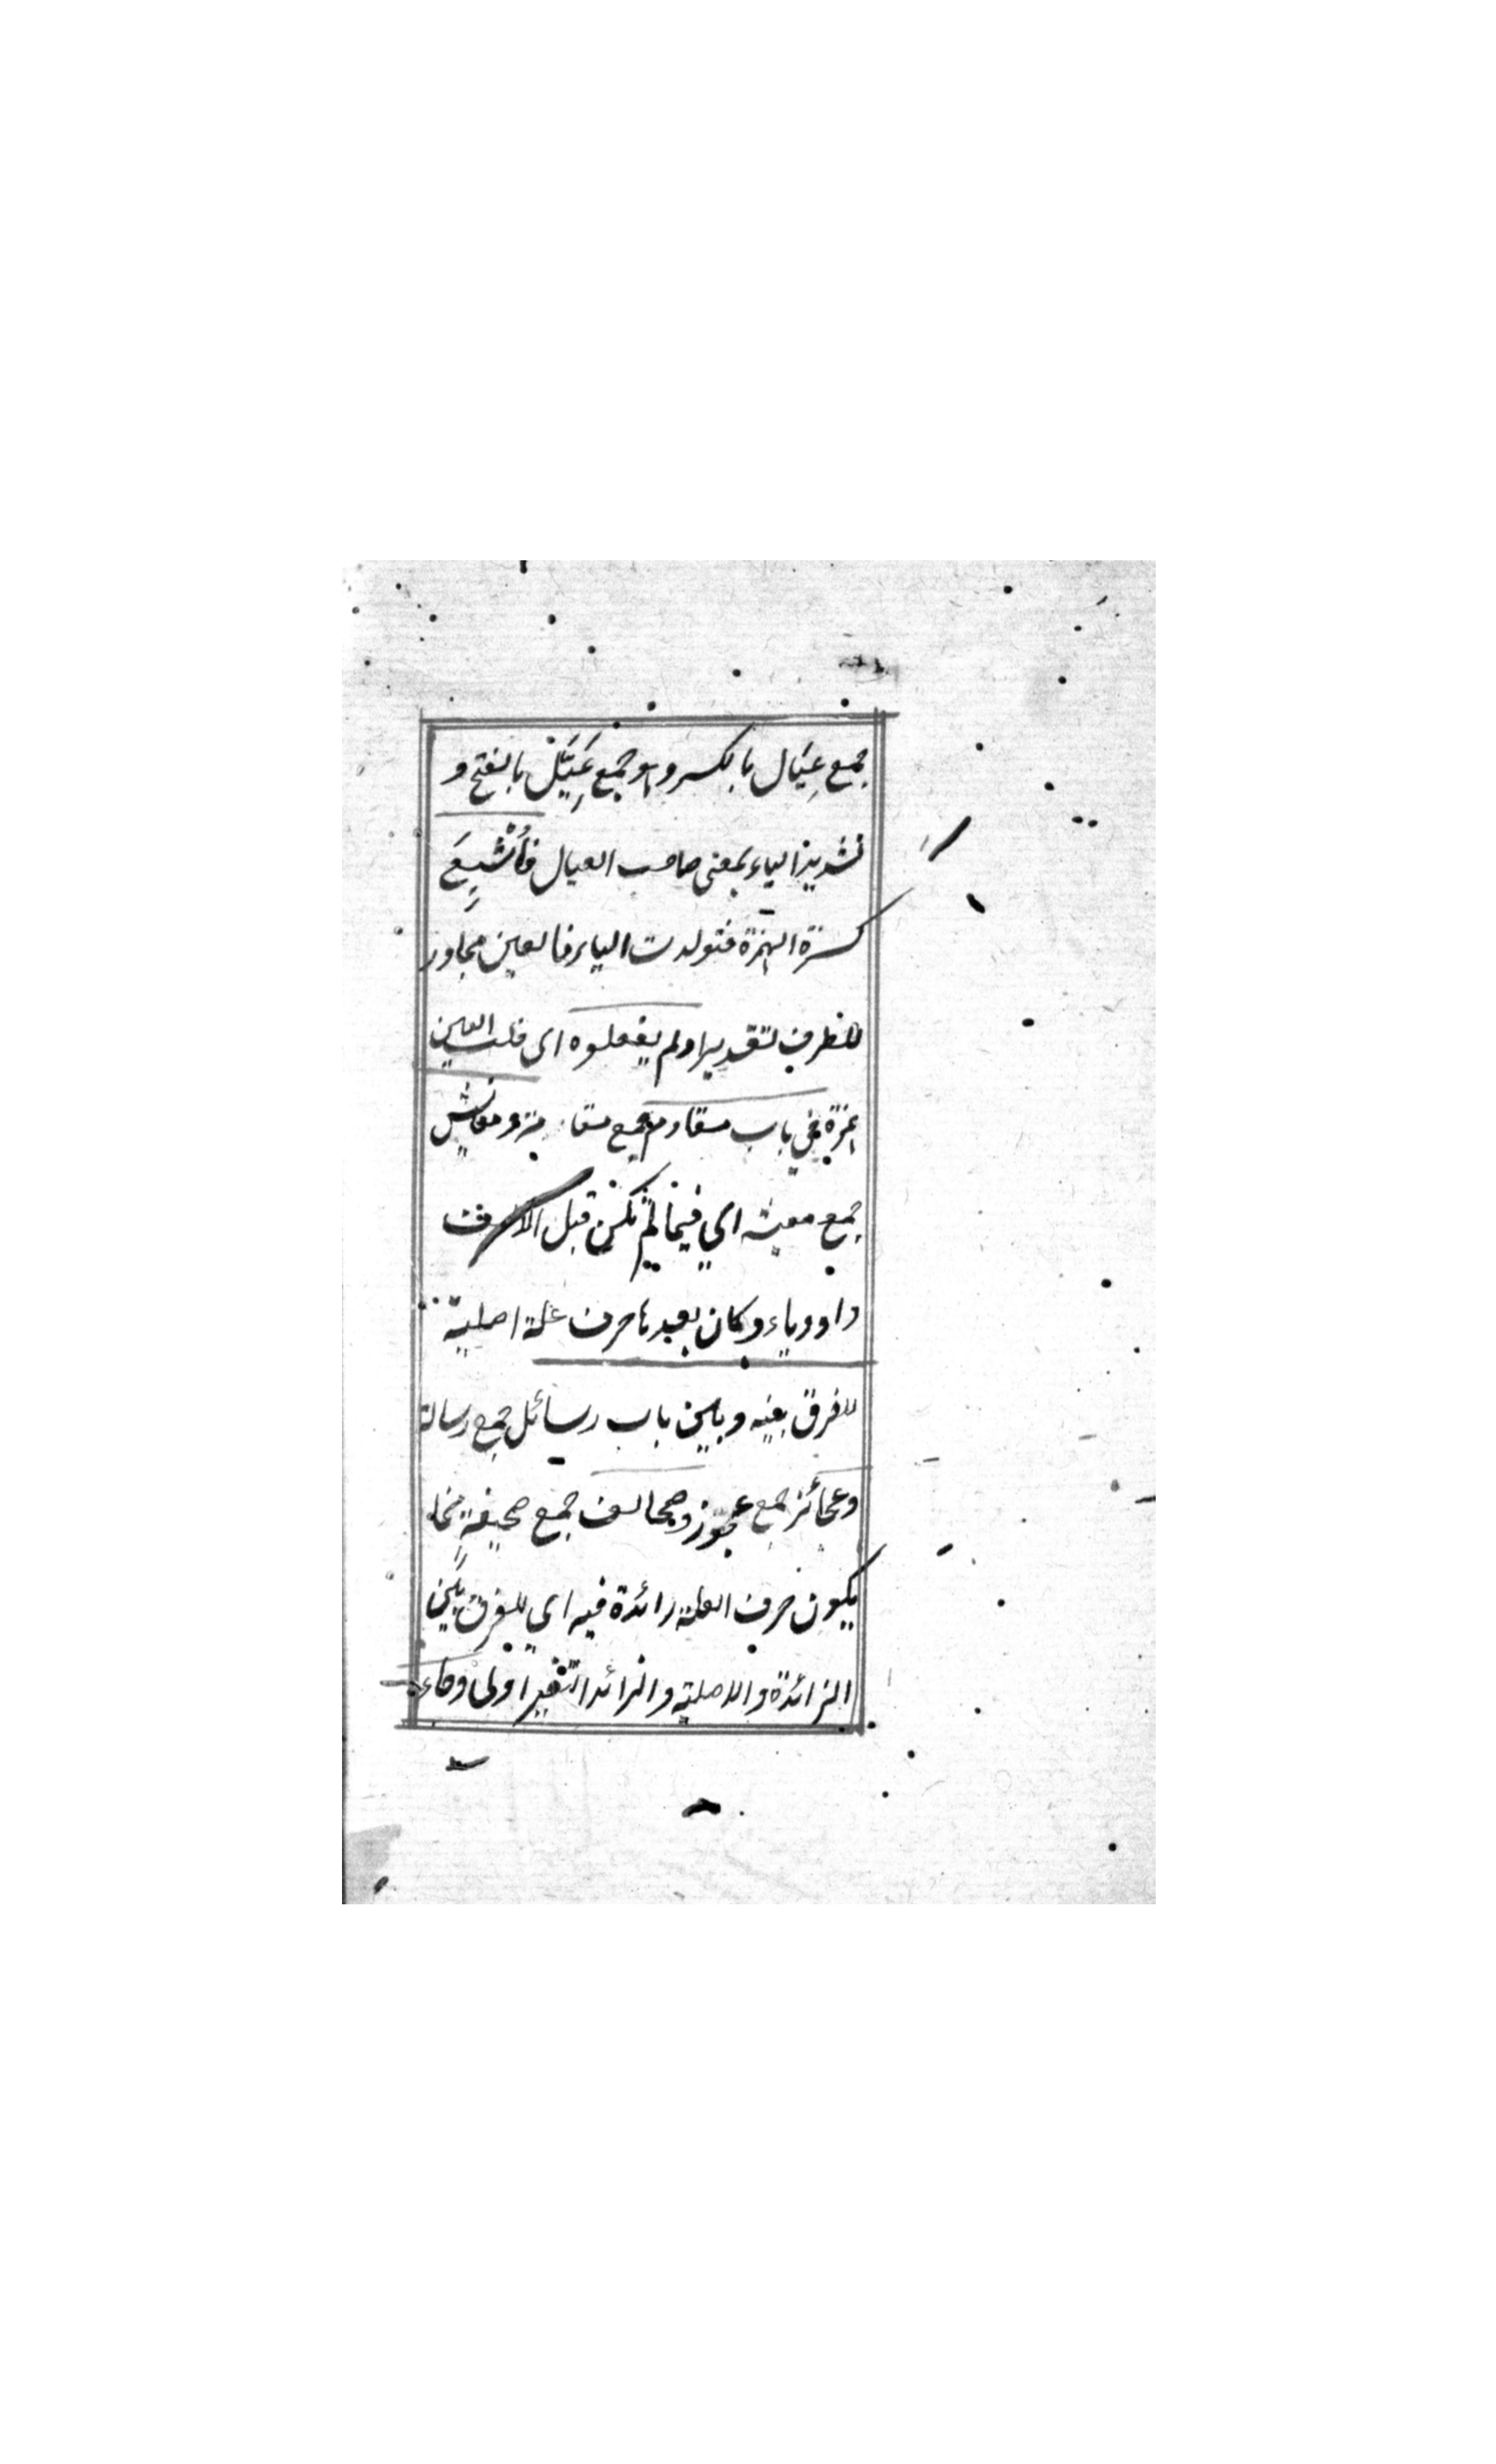 جمع عِيَال بالكسر وهو جمع عَيِّل بالفتح و
تشديد الياء بمعنى صاحب العيال فأُشْبِعَ
كسرة الهمزة فتولدت الياء فالعين مجاور
للطرف تقديرا ولم يفعلوه اى قلب العين
همزة في باب مقاوم جمع مقا ومعايش
جمع معيشة اي فيما لم يكن قبل الالف
واو وياء وكان بعدها حرف علة اصلية
للفرق بينه وبين باب رسائل جمع رسالة
وعجائز جمع عجوز وصحائف جمع صحيفةٍ مما
يكون حرف العلة زائدة فيه اي للفرق بين
الزائدة والاصلية والزائد التغير اولى وجاء